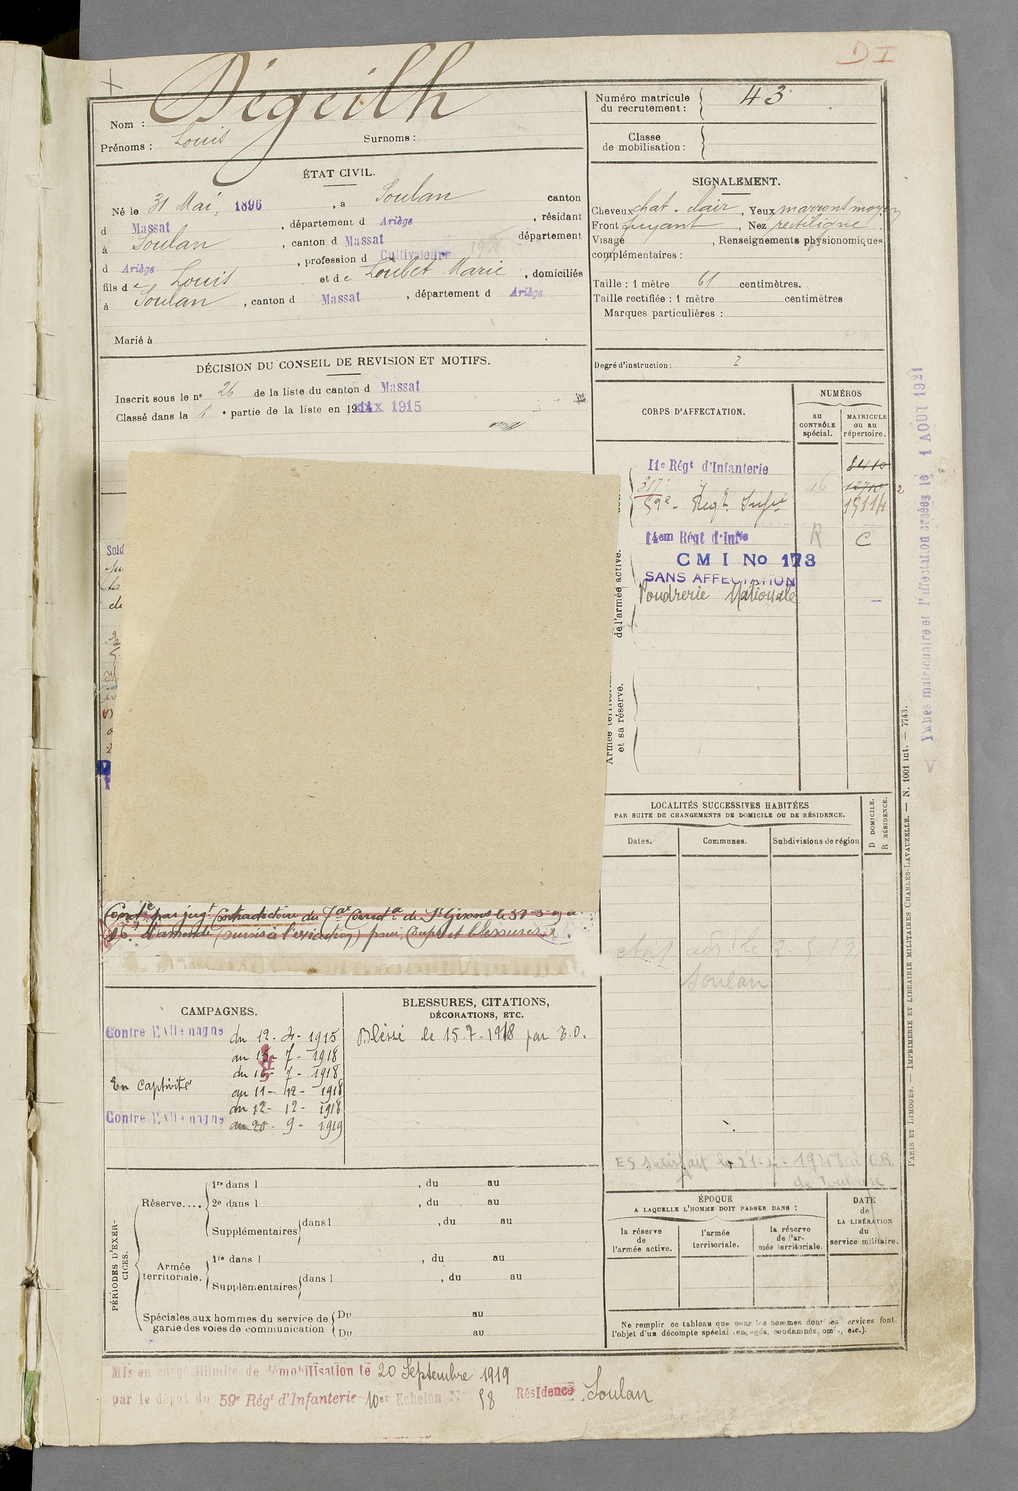 D I
Nom : Dégeilh
Prénoms : Louis Surnoms :
Numéro matricule
du recrutement : 43
Classe
de mobilisation :
ÉTAT CIVIL.
Né le 31 Mai 1896, à Soulan canton
d Massat, département d Ariège, résidant
à Soulan, canton d Massat département
d Ariège, profession d Cultivateur
fils de Louis et de Loubet Marie, domiciliés
à Soulan, canton d Massat, département d Ariège
Marié à
SIGNALEMENT.
Cheveux chat. clair, Yeux marrons moyen
Front fuyant, Nez rectiligne
Visage , Renseignements physionomiques
complémentaires :
Taille : 1 mètre 61 centimètres.
Taille rectifiée : 1 mètre centimètres
Marques particulières :
Degré d'instruction : 2
DÉCISION DU CONSEIL DE REVISION ET MOTIFS.
Inscrit sous le n° 26 de la liste du canton d Massat
Classé dans la 1 e partie de la liste en 19 1915
CORPS D'AFFECTATION.
NUMÉROS
au
CONTRÔLE
spécial.
MATRICULE
ou au
répertoire.
11e Régt d'Infanterie 8410
317
59e Regt Infie 16 12710
15114
14em Régt d'Infie R C
C M I No 173
SANS AFFECTATION
Poudrerie Nationale
de l'armée active.
et sa réserve.
LOCALITÉS SUCCESSIVES HABITÉES
PAR SUITE DE CHANGEMENTS DE DOMICILE OU DE RÉSIDENCE.
Dates.
Communes.
Subdivisions de région
D DOMICILE.
R RÉSIDENCE.
Soulan
Condé par jugt contradictoire du Tal Correctel de St Girons le
d'amende (sursis à l'exécution) pour Coups et blessures
CAMPAGNES.
Contre l'Allemagne du 12-4-1915
au 15-7-1918
En captivité du 16-7-1918
au 11-12-1918
Contre l'Allemagne du 12-12-1918
au 20-9-1919
BLESSURES, CITATIONS,
DÉCORATIONS, ETC.
Blessé le 15-7-1918 par E.O.
ES satisfait le 21- -194 CR
de Toulouse
PÉRIODES D'EXERCICES.
Réserve....
1re dans l , du au
2e dans l , du au
Supplémentaires dans l , du au
Armée
territoriale.
1re dans l , du au
Supplémentaires dans l , du au
Spéciales aux hommes du service de
garde des voies de communication
Du au
Du au
ÉPOQUE
A LAQUELLE L'HOMME DOIT PASSER DANS :
la réserve
de
l'armée active.
l'armée
territoriale.
la réserve
de l'ar-
mée territoriale.
DATE
de
LA LIBÉRATION
du
service militaire.
Ne remplir ce tableau que pour les hommes dont les services font
l'objet d'un décompte spécial (engagés, condamnés, omis, etc.).
Mis en congé illimité de démobilisation le 20 Septembre 1919
par le dépôt du 59e Rég' d'Infanterie 10er Echelon N° 58 Résidence Soulan
PARIS ET LIMOGES. — IMPRIMERIE ET LIBRAIRIE MILITAIRES CHARLES-LAVAUZELLE. — N. 1001 int. — 7743.
matriculaire et l'affectation arrêtées le 1 AOUT 1921